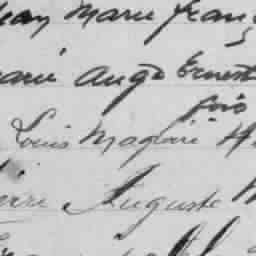 Jean Marie Franç
Marie Ange Ernest
Louis Magloire H
Pierre Auguste M